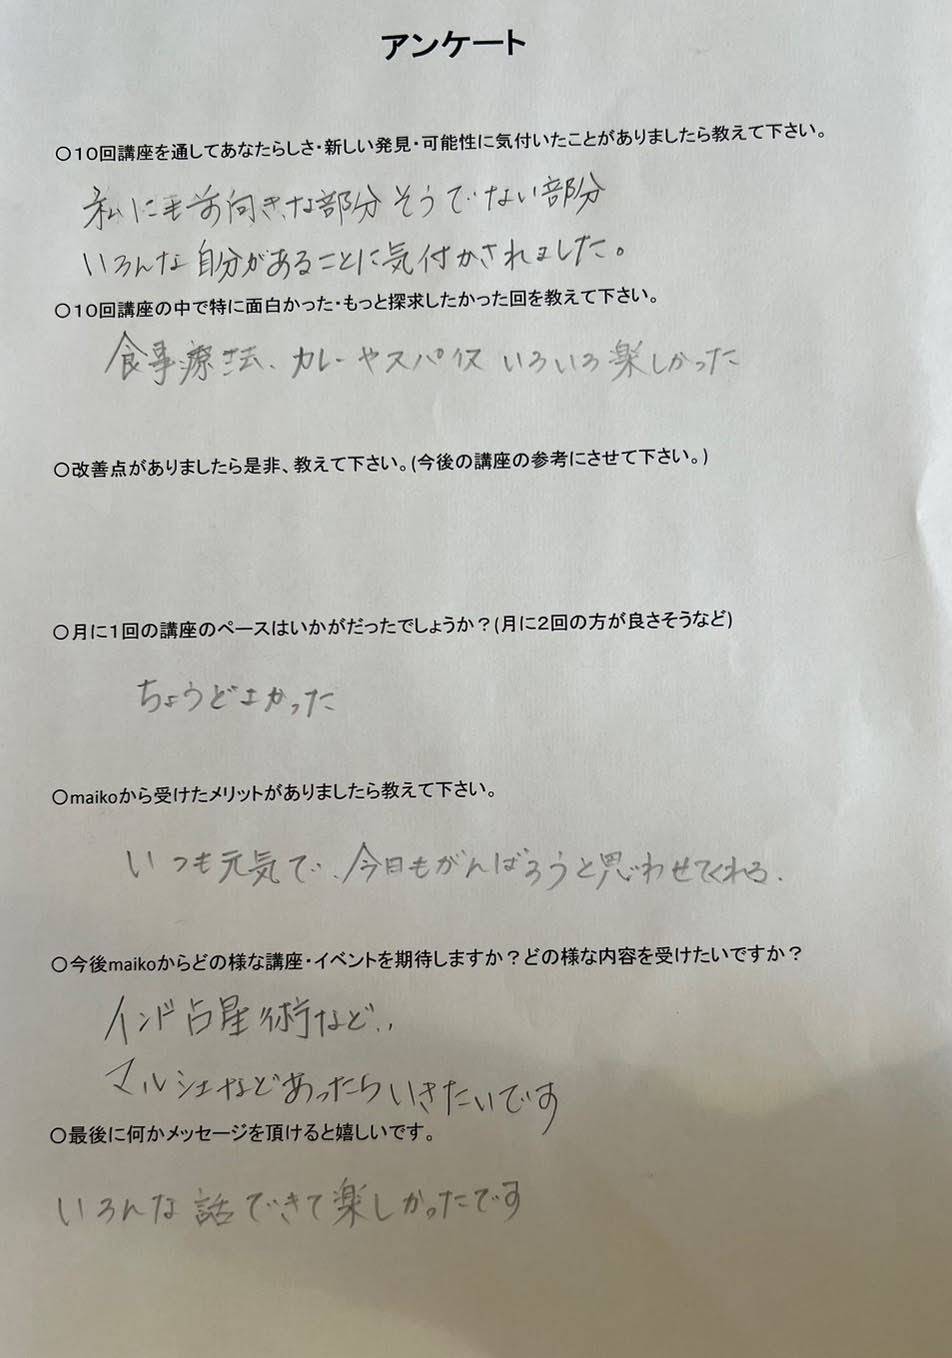 アンケート
○10回講座を通してあなたらしさ・新しい発見・可能性に気付いたことがありましたら教えて下さい。
私にも前向きな部分そうでない部分
いろんな自分があることに気付かされました。
○10回講座の中で特に面白かった・もっと探求したかった回を教えて下さい。
食事療法、カレーやスパイス いろいろ楽しかった
○改善点がありましたら是非、教えて下さい。(今後の講座の参考にさせて下さい。)
○月に1回の講座のペースはいかがだったでしょうか？(月に2回の方が良さそうなど)
ちょうどよかった
○maikoから受けたメリットがありましたら教えて下さい。
いつも元気で、今日もがんばろうと思わせてくれる.
○今後maikoからどの様な講座・イベントを期待しますか？どの様な内容を受けたいですか？
インド占星術など..
マルシェなどあったらいきたいです
○最後に何かメッセージを頂けると嬉しいです。
いろんな話できて楽しかったです